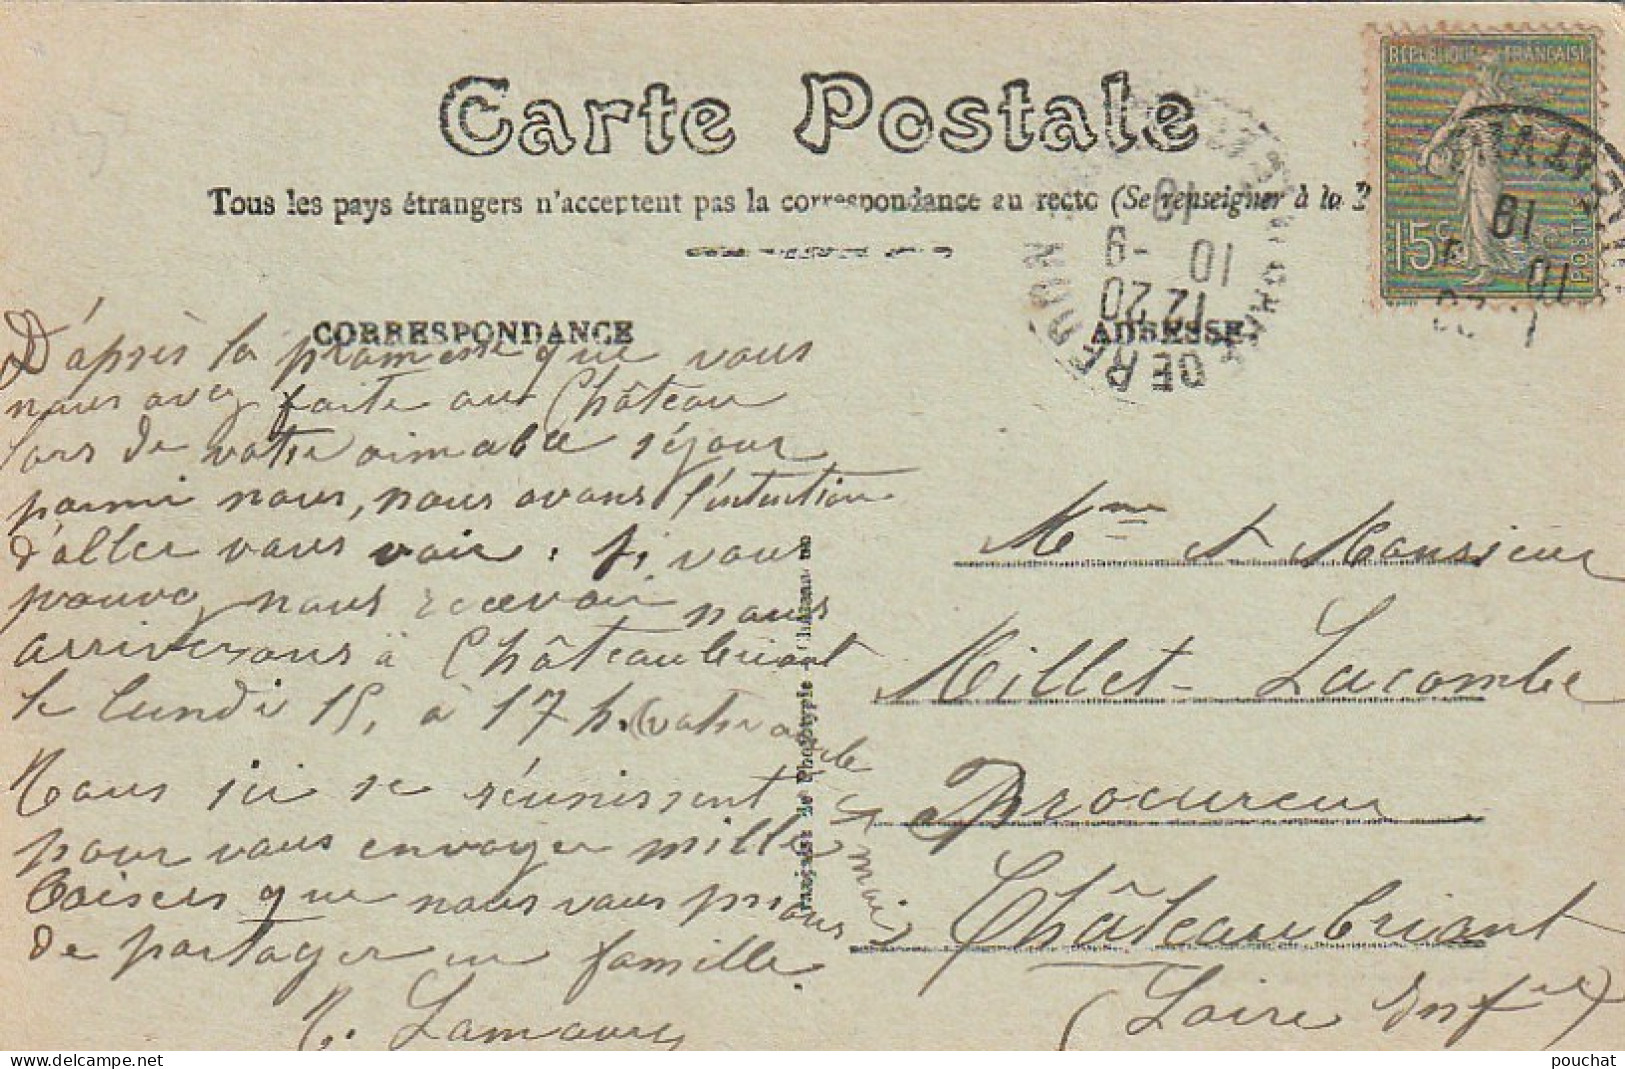 Carte Postale
Tous les pays étrangers n'acceptent pas la correspondance au recto (Se renseigner à la
REPUBLIQUE FRANÇAISE
15c
POSTES
10
10
12 20
CORRESPONDANCE
ADRESSE
D'après la promesse que vous
nous avez faite au Château
lors de votre aimable séjour
parmi nous, nous avons l'intention
d'aller vous voir. Si vous
pouvez nous recevoir nous
arriverons à Châteaubriant
le lundi 15, à 17 h. (votre
Nous ici se réunissent
pour vous envoyer mille
baisers que nous vous prions
de partager en famille.
Lamoure
Mme et Monsieur
Millet-Lacombe
Procureur
Châteaubriant
(Loire Infre)
de Phototypie
pouchat